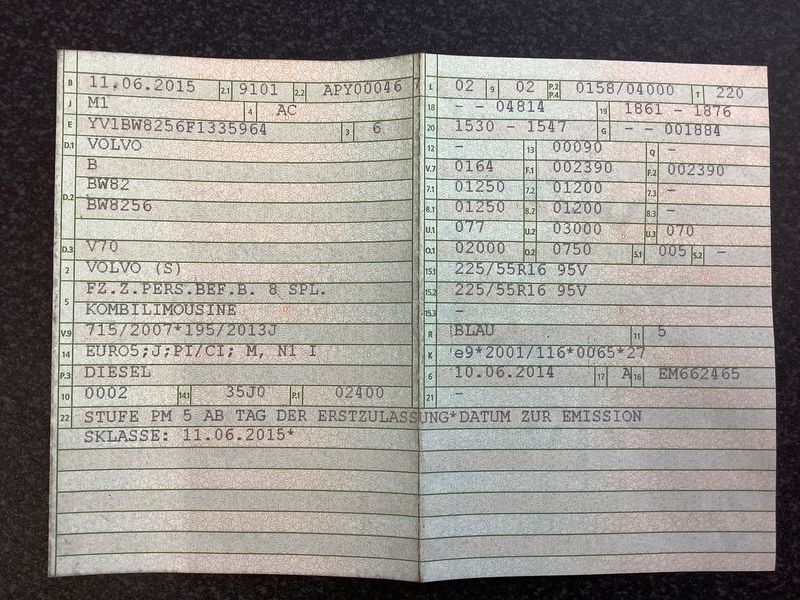 B 11.06.2015 2.1 9101 2.2 APY00046 7
J M1 4 AC
E YV1BW8256F1335964 3 6
D.1 VOLVO
B
D.2 BW82
BW8256
D.3 V70
2 VOLVO (S)
5 FZ.Z.PERS.BEF.B. 8 SPL.
KOMBILIMOUSINE
V.9 715/2007*195/2013J
14 EURO5;J;PI/CI; M, N1 I
P.3 DIESEL
10 0002 14.1 35J0 P.1 02400
22 STUFE PM 5 AB TAG DER ERSTZULASSUNG*DATUM ZUR EMISSION
SKLASSE: 11.06.2015*
L 02 9 02 P.2 P.4 0158/04000 T 220
18 - - 04814 19 1861 - 1876
20 1530 - 1547 G - - 001884
12 - 13 00090 Q -
V.7 0164 F.1 002390 F.2 002390
7.1 01250 7.2 01200 7.3 -
8.1 01250 8.2 01200 8.3 -
U.1 077 U.2 03000 U.3 070
O.1 02000 O.2 0750 S.1 005 S.2 -
15.1 225/55R16 95V
15.2 225/55R16 95V
15.3 -
R BLAU 11 5
K e9*2001/116*0065*27
6 10.06.2014 17 A 16 EM662465
21 -